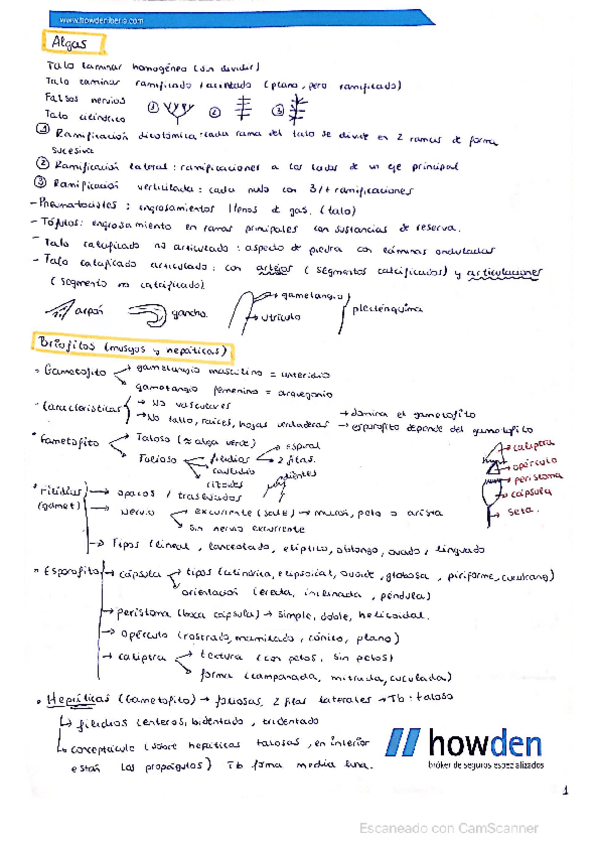 www.howdeniberia.com
Algas
Talo laminar homogéneo (sin dividir)
Talo laminar ramificado / acintado (plano, pero ramificado)
Falsos nervios ① ② ③
Talo cilíndrico
① Ramificación dicotómica: cada rama del talo se divide en 2 ramas de forma
sucesiva
② Ramificación lateral: ramificaciones a los lados de un eje principal
③ Ramificación verticilada: cada nudo con 3/+ ramificaciones
- Pneumatocistes: engrosamientos llenos de gas. (talo)
- Tófulos: engrosamiento en ramas principales con sustancias de reserva.
- Talo calcificado no articulado: aspecto de piedra con láminas onduladas
- Talo calcificado articulado: con artejos (segmentos calcificados) y articulaciones
(segmento no calcificado)
arpón
gancho
→ gametangio
→ utrículo
plecténquima
Briofitos (musgos y hepáticas)
• Gametofito → gametangio masculino = anteridio
→ gametangio femenino = arquegonio
• Características → No vasculares
→ No tallo, raíces, hojas verdaderas → domina el gametofito
→ esporofito depende del gametofito
• Gametofito → Taloso (≈ alga verde)
→ Folioso → filidios → espiral
→ 2 filas
→ cauloides
→ rizoides
dientes
→ caliptra
→ opérculo
→ peristoma
→ cápsula
→ seta.
• Filidios → opacos / traslúcidos
(gamet)
→ Nervio → excurrente (sale) → mucrón, pelo o arista
→ sin nervio excurrente
→ Tipos (lineal, lanceolado, elíptico, oblongo, ovado, lingulado
• Esporofito → cápsula → tipos (cilíndrica, elipsoidal, ovoide, globosa, piriforme,
→ orientación (erecta, inclinada, péndula)
→ peristoma (boca cápsula) → simple, doble, helicoidal.
→ opérculo (rostrado, mamilado, cónico, plano)
→ caliptra → textura (con pelos, sin pelos)
→ forma (campanada, mitrada, cuculada)
• Hepáticas (Gametofito) → foliosas, 2 filas laterales → Tb: taloso
→ filidios (enteros, bidentado, tridentado
→ conceptáculo (sobre hepáticas talosas, en interior
están los propágulos) Tb forma media luna.
howden
bróker de seguros especializados
1
Escaneado con CamScanner